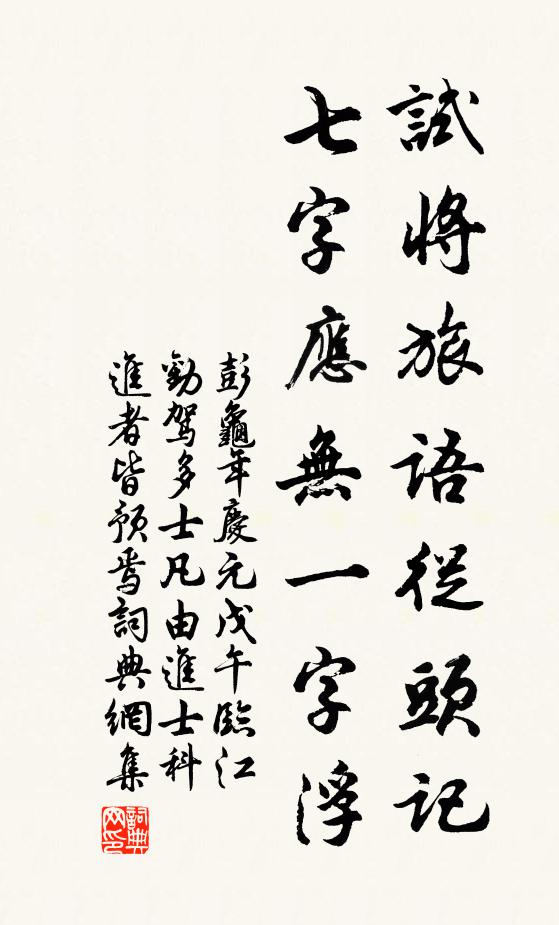 試將旅語從頭記
七字應無一字浮
彭龜年慶元戊午臨江
勸駕多士凡由進士科
進者皆預焉詞典網集
詞典
网印